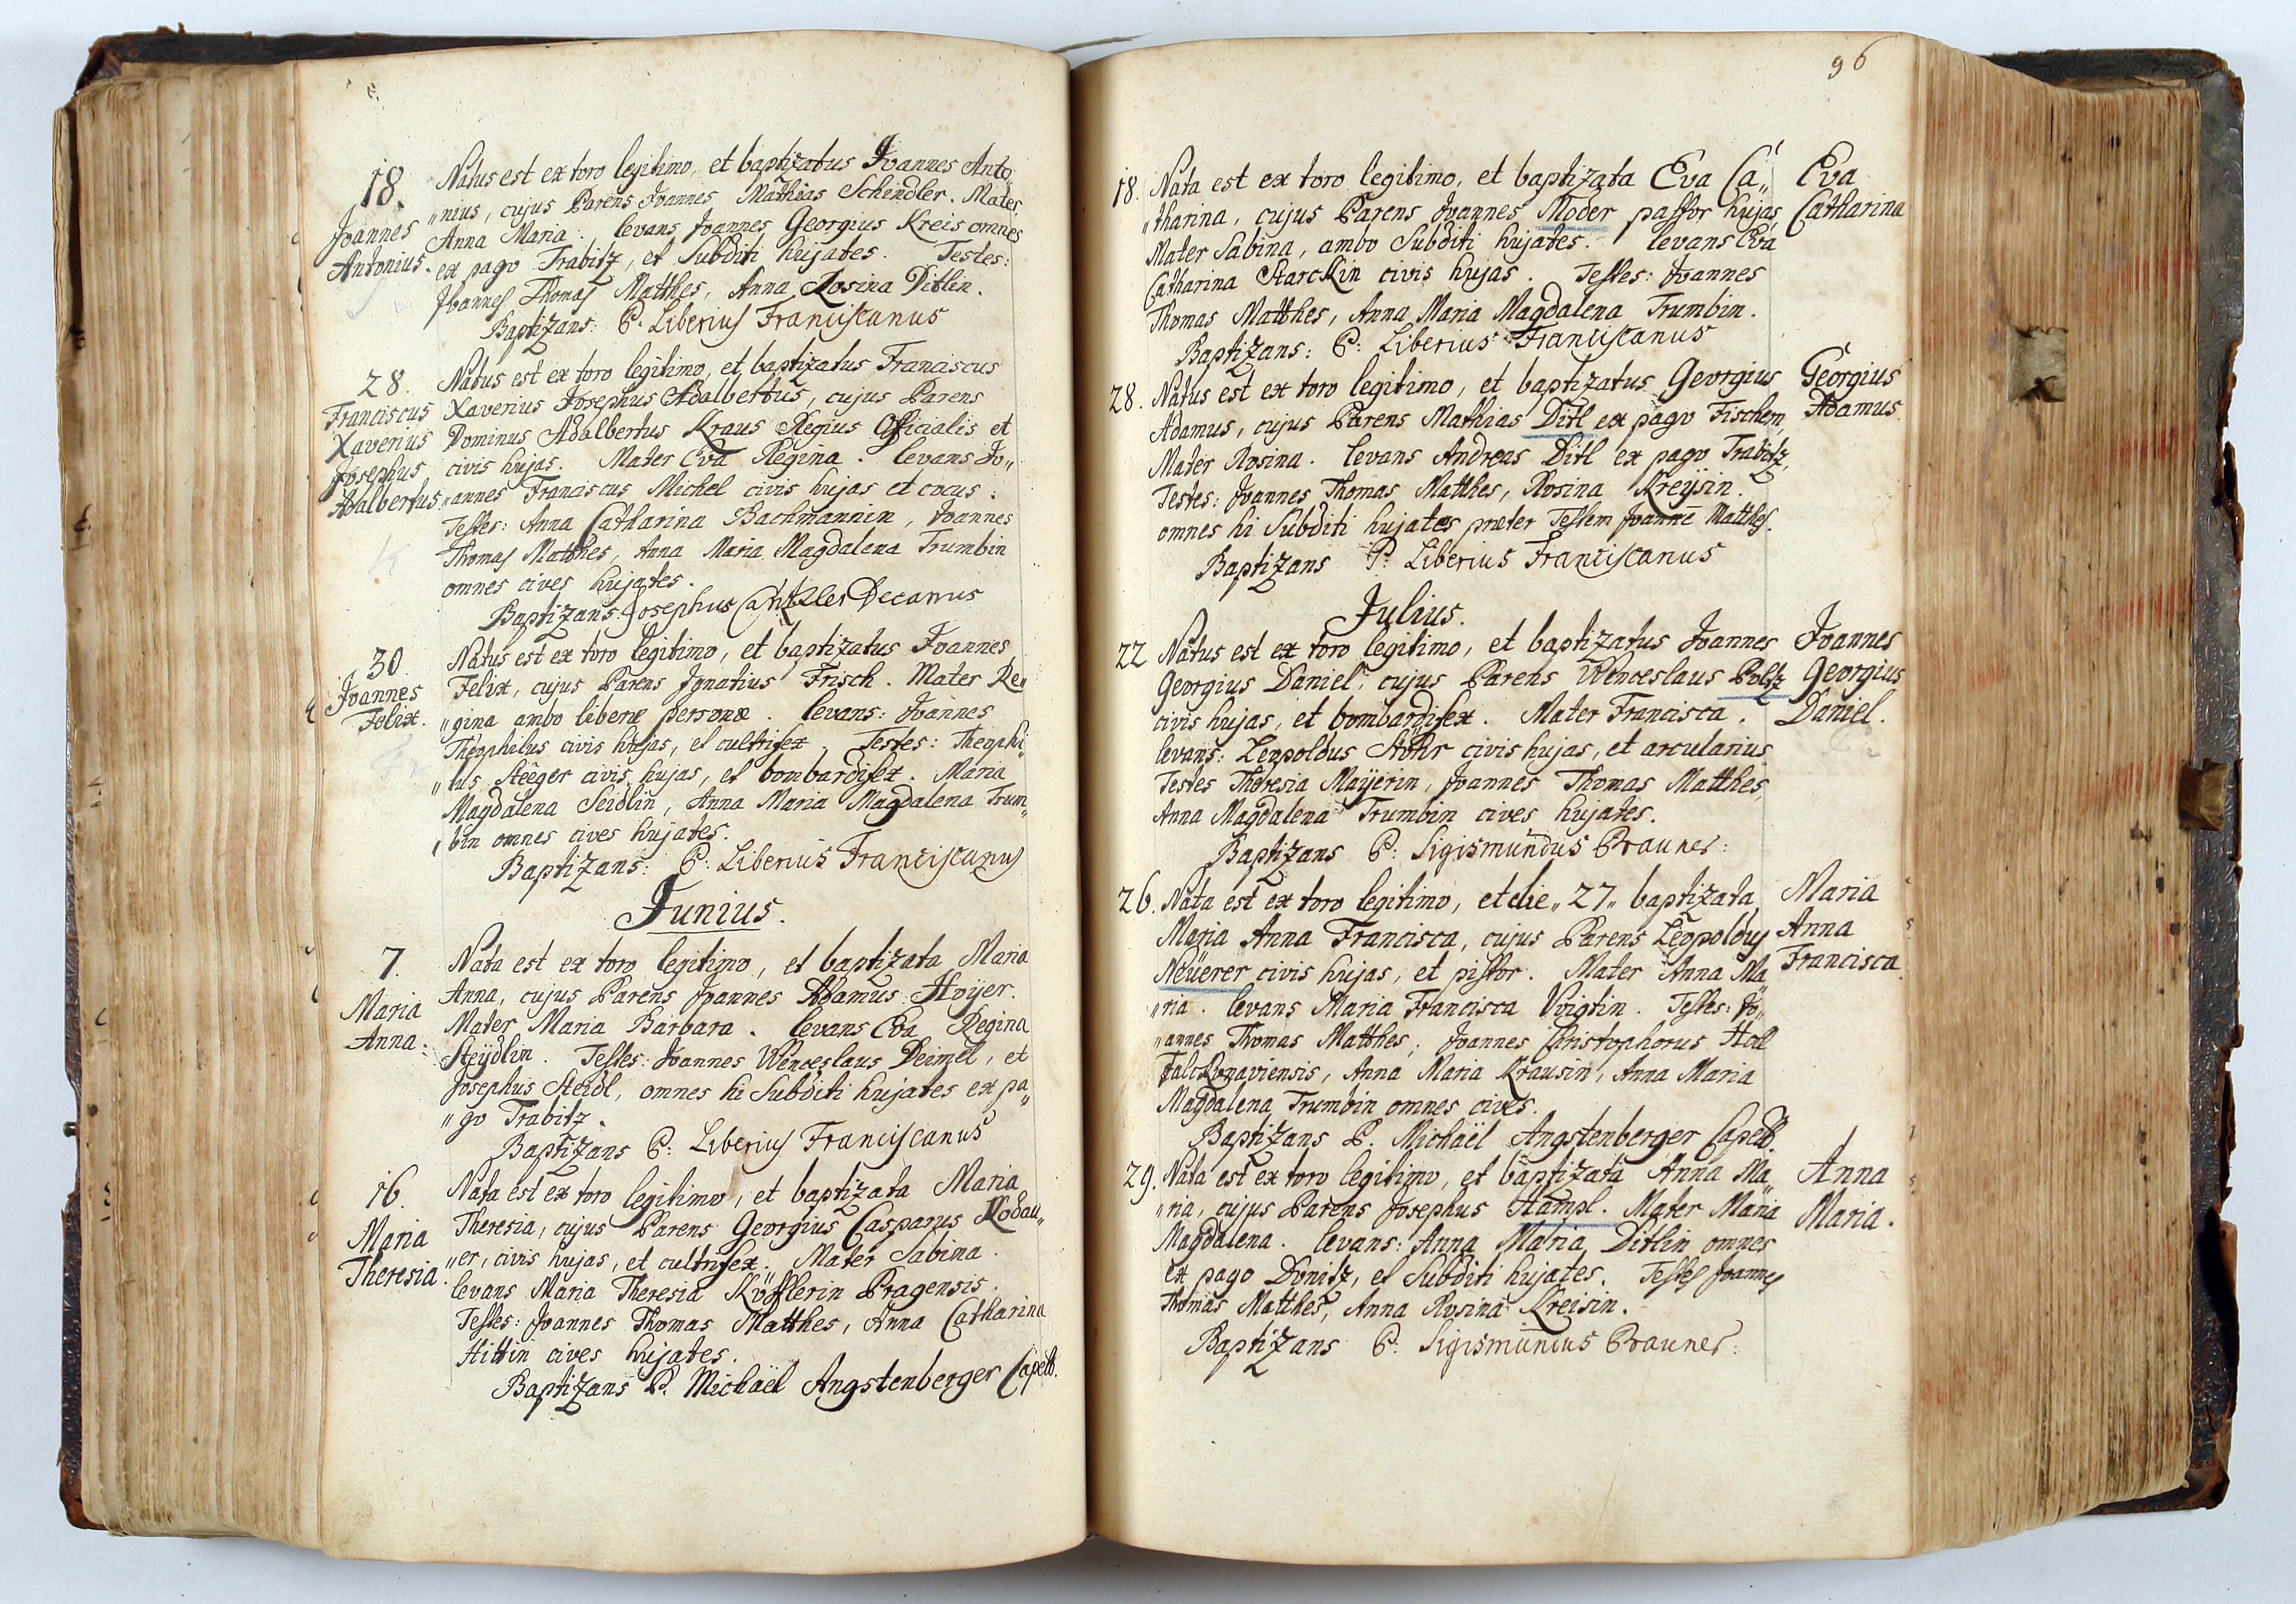 18. Natus est ex toro legitimo, et baptizatus Joannes Anto
Joannes „nius, cujus Parens Joannes Mathias Schindler. Mater
Antonius. Anna Maria. levans Joannes Georgius Kreis omnes
ex pago Trabitz, et Subditi hujates. Testes:
Joannes Thomas Matthes, Anna Rosina Ditlin.
Baptizans: P. Liberius Franciscanus
28. Natus est ex toro legitimo, et baptizatus Franciscus
Franciscus Xaverius Josephus Adalbertus, cujus Parens
Xaverius Dominus Adalbertus Kraus Regius Officialis et
Josephus civis hujas. Mater Eva Regina. levans Jo„
Adalbertus „annes Franciscus Michel civis hujas et cocus.
Testes: Anna Catharina Bachmannin, Joannes
Thomas Matthes, Anna Maria Magdalena Trumbin
omnes cives hujates.
Baptizans: Josephus Cantzler Decanus
30 Natus est ex toro legitimo, et baptizatus Joannes
Joannes Felix, cujus Parens Ignatius Frisch. Mater Re„
Felix. „gina ambo liberæ personæ. levans: Joannes
Theophilus civis hujas, et cultrifex. Testes: Theophi„
„lus Steeger civis hujas, et bombardifex. Maria
Magdalena Seidlin, Anna Maria Magdalena Trum„
„bin omnes cives hujates.
Baptizans: P: Liberius Franciscanus
Junius.
7. Nata est ex toro legitimo, et baptizata Maria
Maria Anna, cujus Parens Joannes Adamus Hoyer.
Anna. Mater Maria Barbara. levans Eva Regina
Steÿdlin. Testes: Joannes Wenceslaus Deimel, et
Josephus Steidl, omnes hi Subditi hujates ex pa„
„go Trabitz.
Baptizans P: Liberius Franciscanus
16. Nata est ex toro legitimo, et baptizata Maria
Maria Theresia, cujus Parens Georgius Casparus Rodau„
Theresia. „er, civis hujas, et cultrifex. Mater Sabina.
levans Maria Theresia Köfflerin Pragensis.
Testes: Joannes Thomas Matthes, Anna Catharina
Hittin cives hujates.
Baptizans P. Michaël Angstenberger Capell.
96
18. Nata est ex toro legitimo, et baptizata Eva Ca„ Eva
„tharina, cujus Parens Joannes Moder pastor hujas Catharina
Mater Sabina, ambo Subditi hujates. levans Eva
Catharina Starcklin civis hujas. Testes: Joannes
Thomas Matthes, Anna Maria Magdalena Trumbin.
Baptizans: P: Liberius Franciscanus
28. Natus est ex toro legitimo, et baptizatus Georgius Georgius
Adamus, cujus Parens Mathias Ditl ex pago Fischern, Adamus
Mater Rosina. levans Andreas Ditl ex pago Trabitz,
Testes: Joannes Thomas Matthes, Rosina Kreÿsin.
omnes hi Subditi hujates præter Testem Joannē Matthes.
Baptizans P: Liberius Franciscanus
Julius.
22 Natus est ex toro legitimo, et baptizatus Joannes Joannes
Georgius Daniel, cujus Parens Wenceslaus Poltz Georgius
civis hujas, et bombardifex. Mater Francisca. Daniel.
levans: Leopoldus Stöhr civis hujas, et arcularius
Testes Theresia Maÿerin, Joannes Thomas Matthes,
Anna Magdalena Trumbin cives hujates.
Baptizans P: Sigismundus Brauner:
26. Nata est ex toro legitimo, et die „27„ baptizata Maria
Maria Anna Francisca, cujus Parens Leopoldus Anna
Neüerer civis hujas, et pistor. Mater Anna Ma„ Francisca
„ria. levans Maria Francisca Voigtin. Testes: Jo„
„annes Thomas Matthes, Joannes Christophorus Holl
Falckonaviensis, Anna Maria Krausin, Anna Maria
Magdalena Trumbin omnes cives.
Baptizans P. Michaël Angstenberger Capell.
29. Nata est ex toro legitimo, et baptizata Anna Ma„ Anna
„ria, cujus Parens Josephus Hampl. Mater Maria Maria.
Magdalena. levans: Anna Maria Ditlin omnes
ex pago Donitz, et Subditi hujates. Testes Joannes
Thomas Matthes, Anna Rosina Kreisin.
Baptizans P: Sigismundus Brauner: